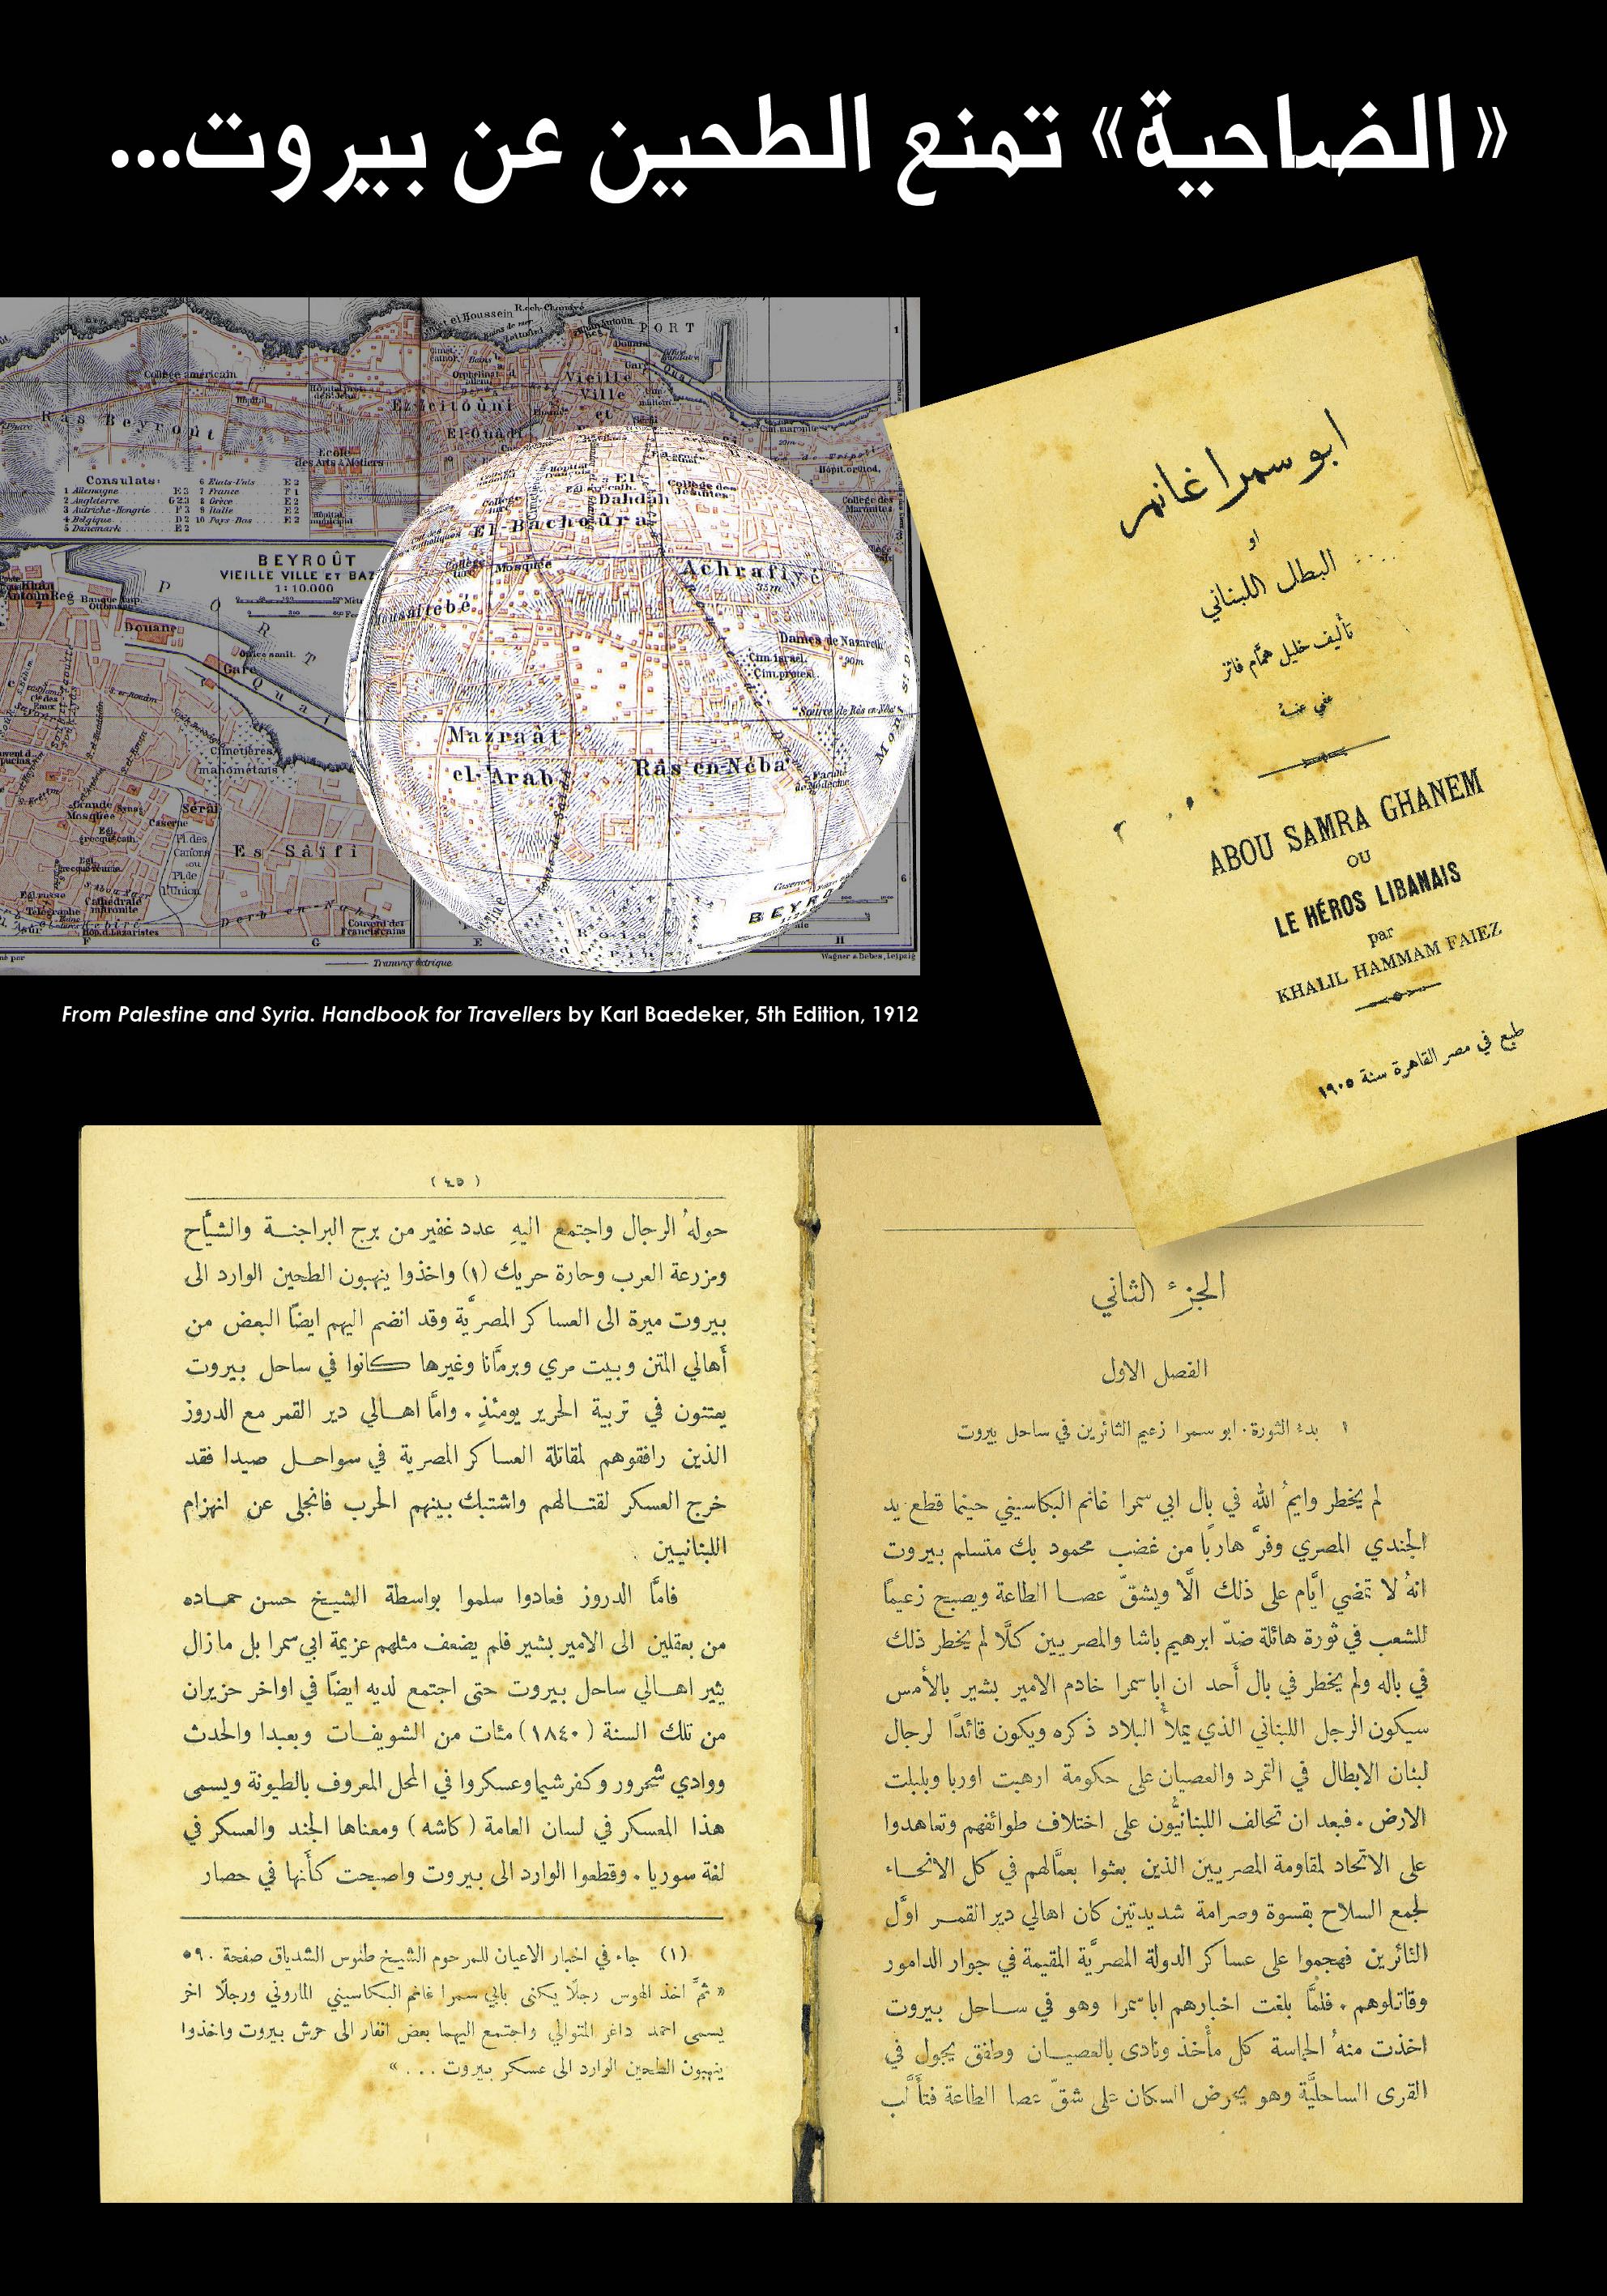 «الضاحية» تمنع الطحين عن بيروت...
El Houssein
PORT
Vieille
Ville
et
Collège américain
Ras Beyrout
Ez-Zeitoûni
El-Ouadi
Ecole
des Arts & Métiers
Consulats:
1 Allemagne E3
2 Angleterre G23
3 Autriche-Hongrie F3
4 Belgique D2
5 Danemark E2
6 Etats-Unis E2
7 France F1
8 Grèce E2
9 Italie E2
10 Pays-Bas E2
BEYROÛT
VIEILLE VILLE ET BAZ
1:10.000
PORT
Douane
Gare
Quai
Cimetières
mahométans
Grande
Mosquée
Sérail
Caserne
Pl. des
Canons
ou
Pl. de
l'Union
Es-Sâïfi
Cathédrale
maronite
Télégraphe
Derb en-Nahr
Couvent des
Franciscains
Hôp. d. Lazaristes
El-
Dahdah
Collège des
Jésuites
El-Bachoûra
Mosquée
Achrafiyé
35m
Dames de Nazareth
90m
Cim. israel.
Cim. protest.
Mazraât
el-Arab
Râs en-Neba
Faculté
de Médecine
Hôpit. orthod.
Collège des
Maronites
Caserne
BEYRO
Tramway électrique
Wagner & Debes, Leipzig
From Palestine and Syria. Handbook for Travellers by Karl Baedeker, 5th Edition, 1912
ابو سمرا غانم
او
البطل اللبناني
تأليف خليل همَّام فائز
عفي عنه
ABOU SAMRA GHANEM
OU
LE HÉROS LIBANAIS
par
KHALIL HAMMAM FAIEZ
طبع في مصر القاهرة سنة ١٩٠٥
الجزء الثاني
الفصل الاول
١ بدء الثورة. ابو سمرا زعيم الثائرين في ساحل بيروت
لم يخطر وايمُ الله في بال ابي سمرا غانم البكاسيني حينما قطع يد
الجندي المصري وفرَّ هاربًا من غضب محمود بك متسلم بيروت
انهُ لا تمضي ايَّام على ذلك الَّا ويشقّ عصا الطاعة ويصبح زعيمًا
للشعب في ثورة هائلة ضدّ ابرهيم باشا والمصريين كلَّا لم يخطر ذلك
في باله ولم يخطر في بال أحد ان ابا سمرا خادم الامير بشير بالأمس
سيكون الرجل اللبناني الذي يملأُ البلاد ذكره ويكون قائدًا لرجال
لبنان الابطال في التمرد والعصيان على حكومة ارهبت اوربا وبلبلت
الارض. فبعد ان تحالف اللبنانيُّون على اختلاف طوائفهم وتعاهدوا
على الاتحاد لمقاومة المصريين الذين بعثوا بعمَّالهم في كل الانحاء
لجمع السلاح بقسوة وصرامة شديدتين كان اهالي دير القمر اوَّل
الثائرين فهجموا على عساكر الدولة المصريَّة المقيمة في جوار الدامور
وقاتلوهم. فلمَّا بلغت اخبارهم ابا سمرا وهو في ساحل بيروت
اخذت منهُ الحماسة كل مأخذ ونادى بالعصيان وطفق يجول في
القرى الساحليَّة وهو يحرض السكان على شقّ عصا الطاعة فتألَّب
(٤٥)
حولهُ الرجال واجتمع اليهِ عدد غفير من برج البراجنة والشيَّاح
ومزرعة العرب وحارة حريك (١) واخذوا ينهبون الطحين الوارد الى
بيروت ميرة الى العساكر المصريَّة وقد انضم اليهم ايضًا البعض من
أهالي المتن وبيت مري وبرمَّانا وغيرها كانوا في ساحل بيروت
يعتنون في تربية الحرير يومئذٍ. وامَّا اهالي دير القمر مع الدروز
الذين رافقوهم لمقاتلة العساكر المصرية في سواحل صيدا فقد
خرج العسكر لقتالهم واشتبك بينهم الحرب فانجلى عن انهزام
اللبنانيين
فامَّا الدروز فعادوا سلموا بواسطة الشيخ حسن حماده
من بعقلين الى الامير بشير فلم يضعف مثلهم عزيمة ابي سمرا بل ما زال
يثير اهالي ساحل بيروت حتى اجتمع لديه ايضًا في اواخر حزيران
من تلك السنة (١٨٤٠) مئات من الشويفات وبعبدا والحدث
ووادي شحرور وكفرشيما وعسكروا في المحل المعروف بالطيونة ويسمى
هذا المعسكر في لسان العامة (كاشه) ومعناها الجند والعسكر في
لغة سوريا. وقطعوا الوارد الى بيروت واصبحت كأنها في حصار
(١) جاء في اخبار الاعيان للمرحوم الشيخ طنوس الشدياق صفحة ٥٩٠
« ثمَّ اخذ الهوس رجلًا يكنى بابي سمرا غانم البكاسيني الماروني ورجلًا اخر
يسمى احمد داغر المتوالي واجتمع اليهما بعض انفار الى حرش بيروت واخذوا
ينهبون الطحين الوارد الى عسكر بيروت . . . »